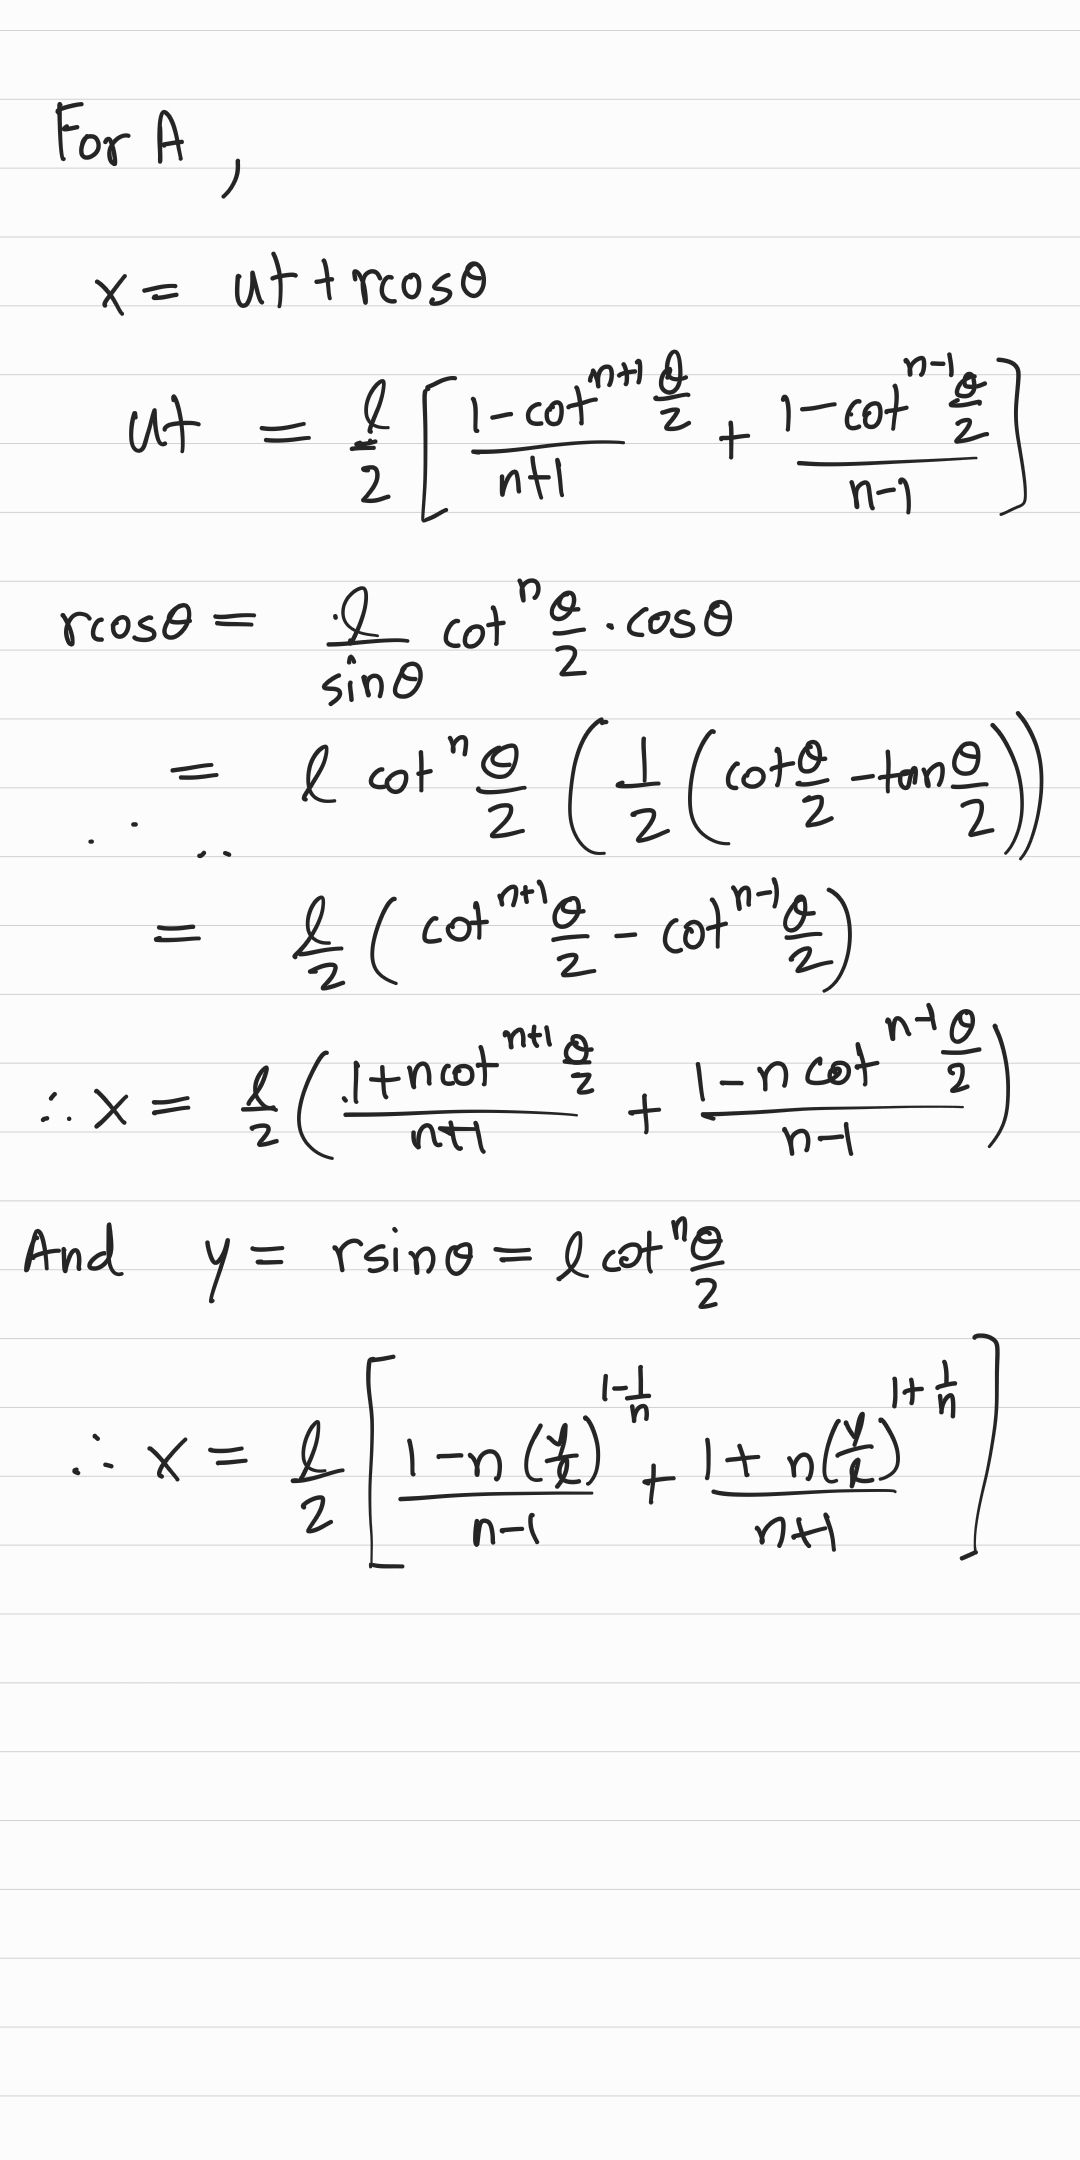 For A,
x = ut + rcosθ
ut = l/2 [ (1 - cot^(n+1) θ/2)/(n+1) + (1 - cot^(n-1) θ/2)/(n-1) ]
rcosθ = l/sinθ cot^n θ/2 · cosθ
= l cot^n θ/2 ( 1/2 ( cot θ/2 - tan θ/2 ) )
= l/2 ( cot^(n+1) θ/2 - cot^(n-1) θ/2 )
∴ x = l/2 ( (1 + n cot^(n+1) θ/2)/(n+1) + (1 - n cot^(n-1) θ/2)/(n-1) )
And y = rsinθ = l cot^n θ/2
∴ x = l/2 [ (1 - n (y/l)^(1 - 1/n))/(n-1) + (1 + n (y/l)^(1 + 1/n))/(n+1) ]